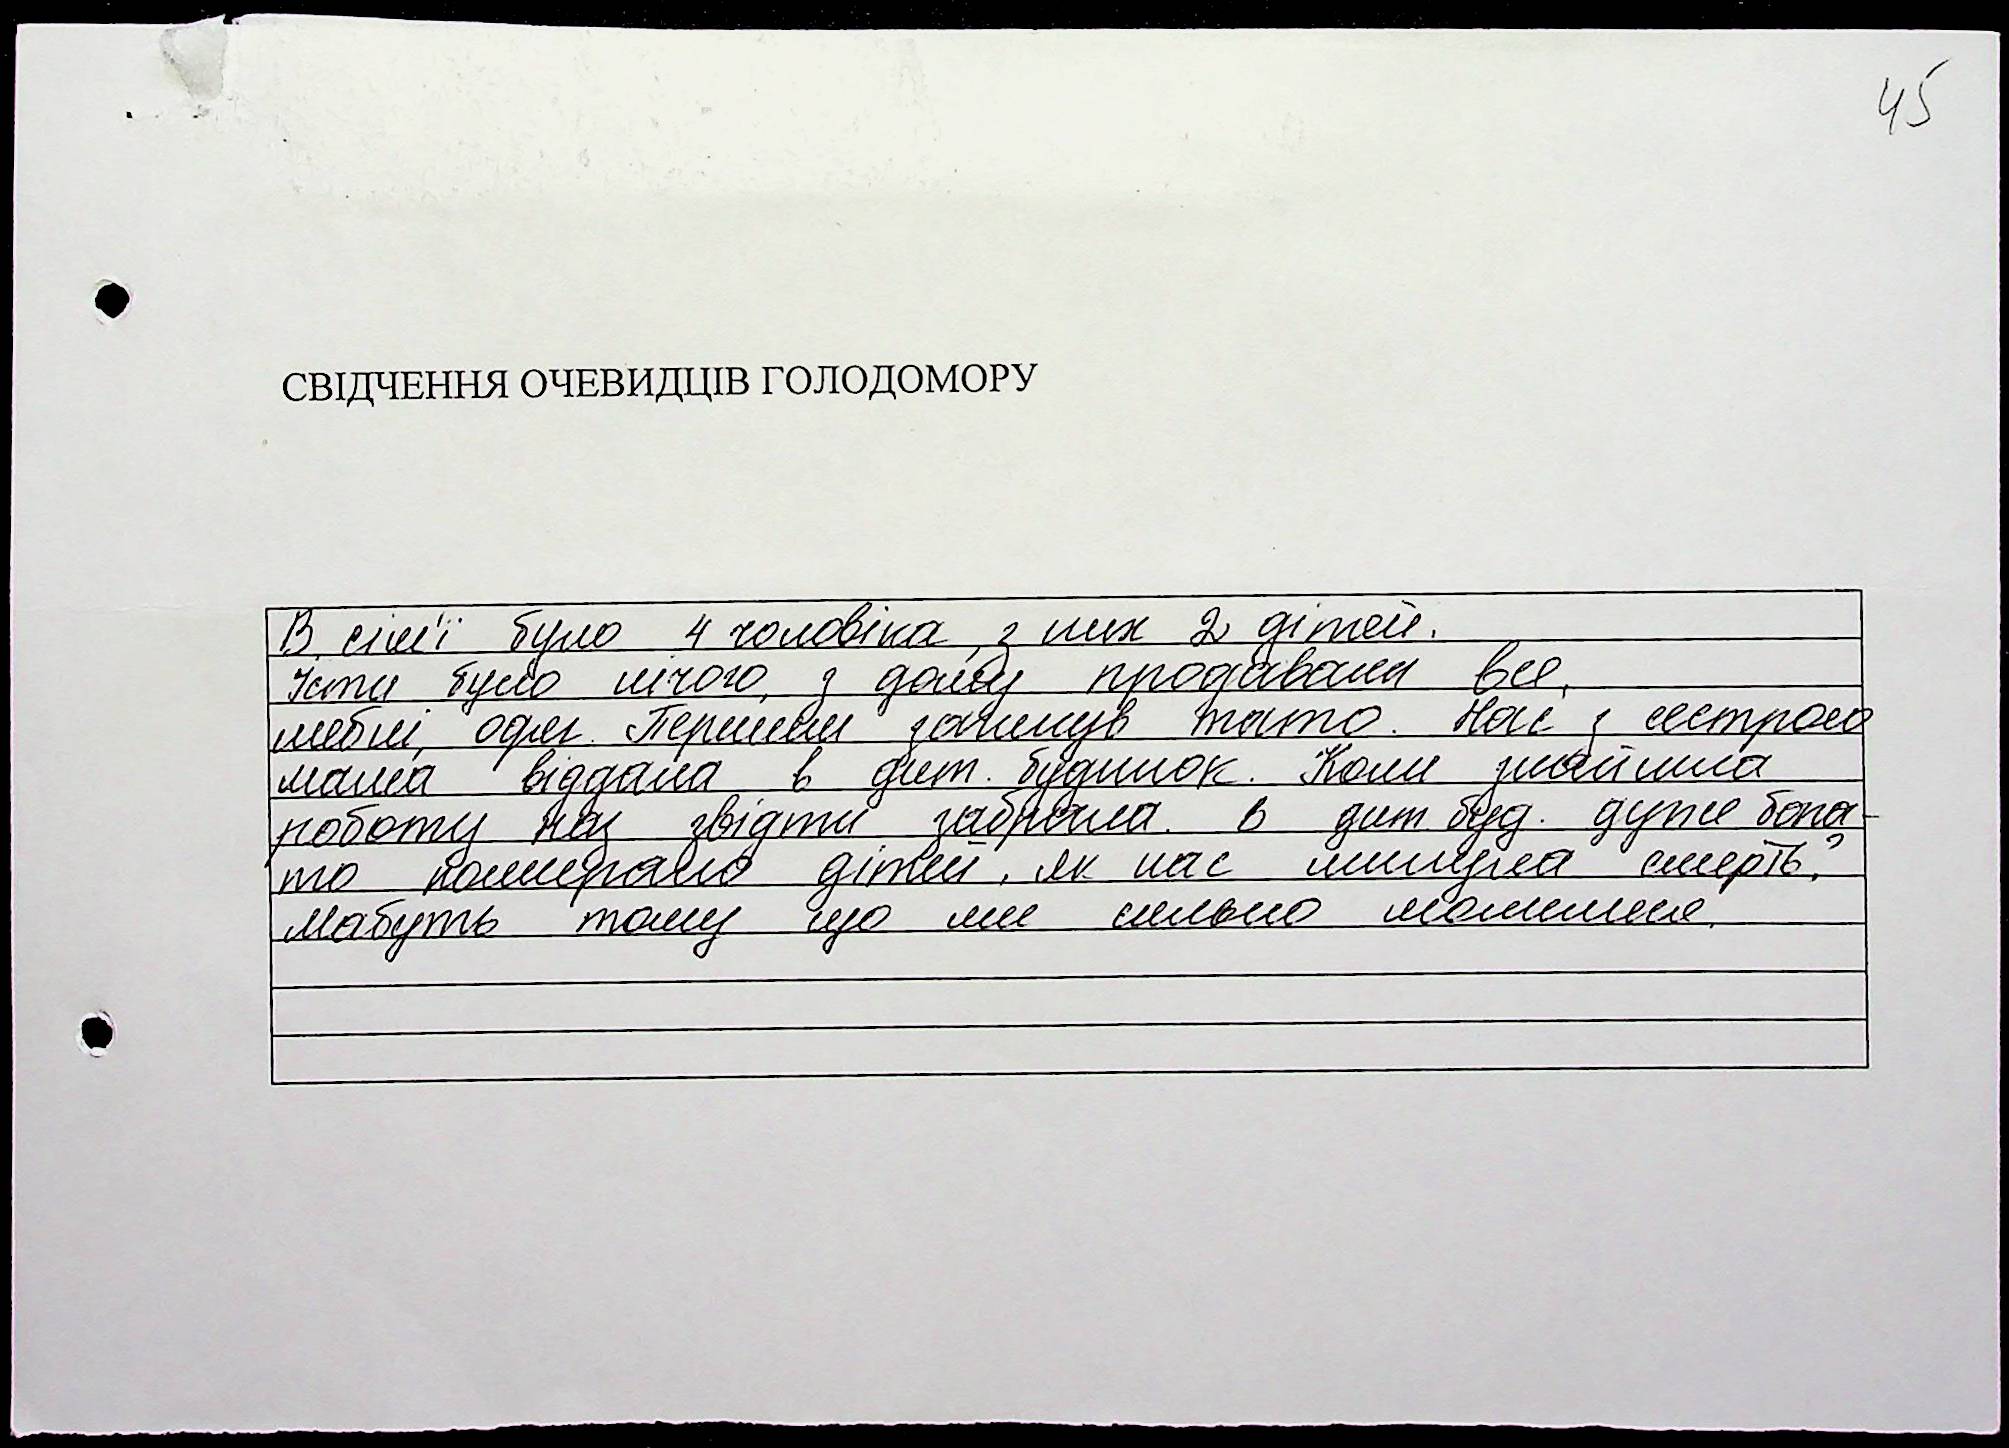 45
СВІДЧЕННЯ ОЧЕВИДЦІВ ГОЛОДОМОРУ
В сім'ї було 4 чоловіка, з них 2 дітей.
Їсти було нічого, з дому продавали все,
меблі, одяг. Першим загинув тато. Нас з сестрою
мама віддала в дит. будинок. Коли знайшла
роботу нас звідти забрала. В дит. буд. дуже бага-
то помирало дітей. Як нас минула смерть?
Мабуть тому що ми сильно молилися.